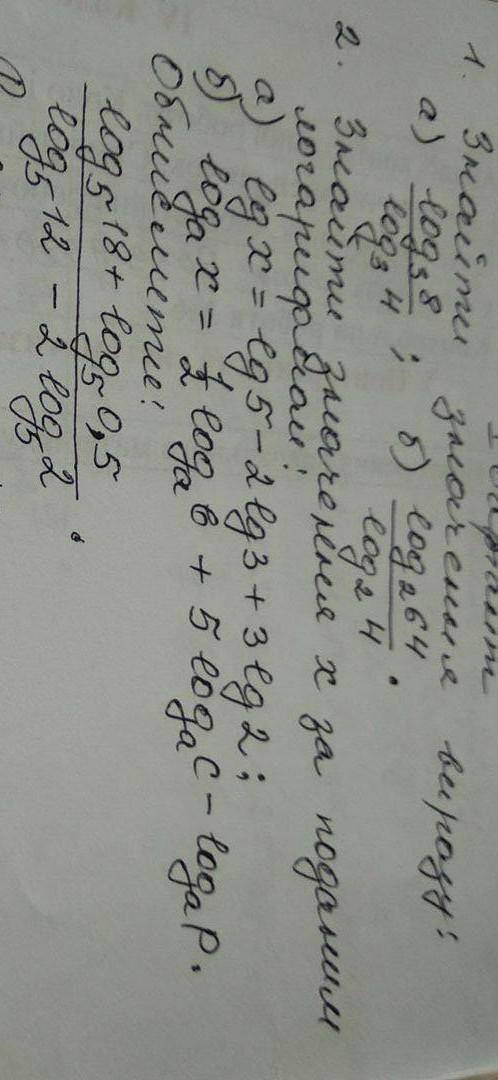 Варіант
1. Знайти значення виразу:
а) log₃8 / log₃4 ; б) log₂64 / log₂4 .
2. Знайти значення х за поданим
логарифмом:
а) lg x = lg 5 - 2 lg 3 + 3 lg 2;
б) logₐ x = 1/2 logₐ в + 5 logₐ c - logₐ p.
Обчислити:
log₅18 + log₅0,5
log₅12 - 2 log₅2 .